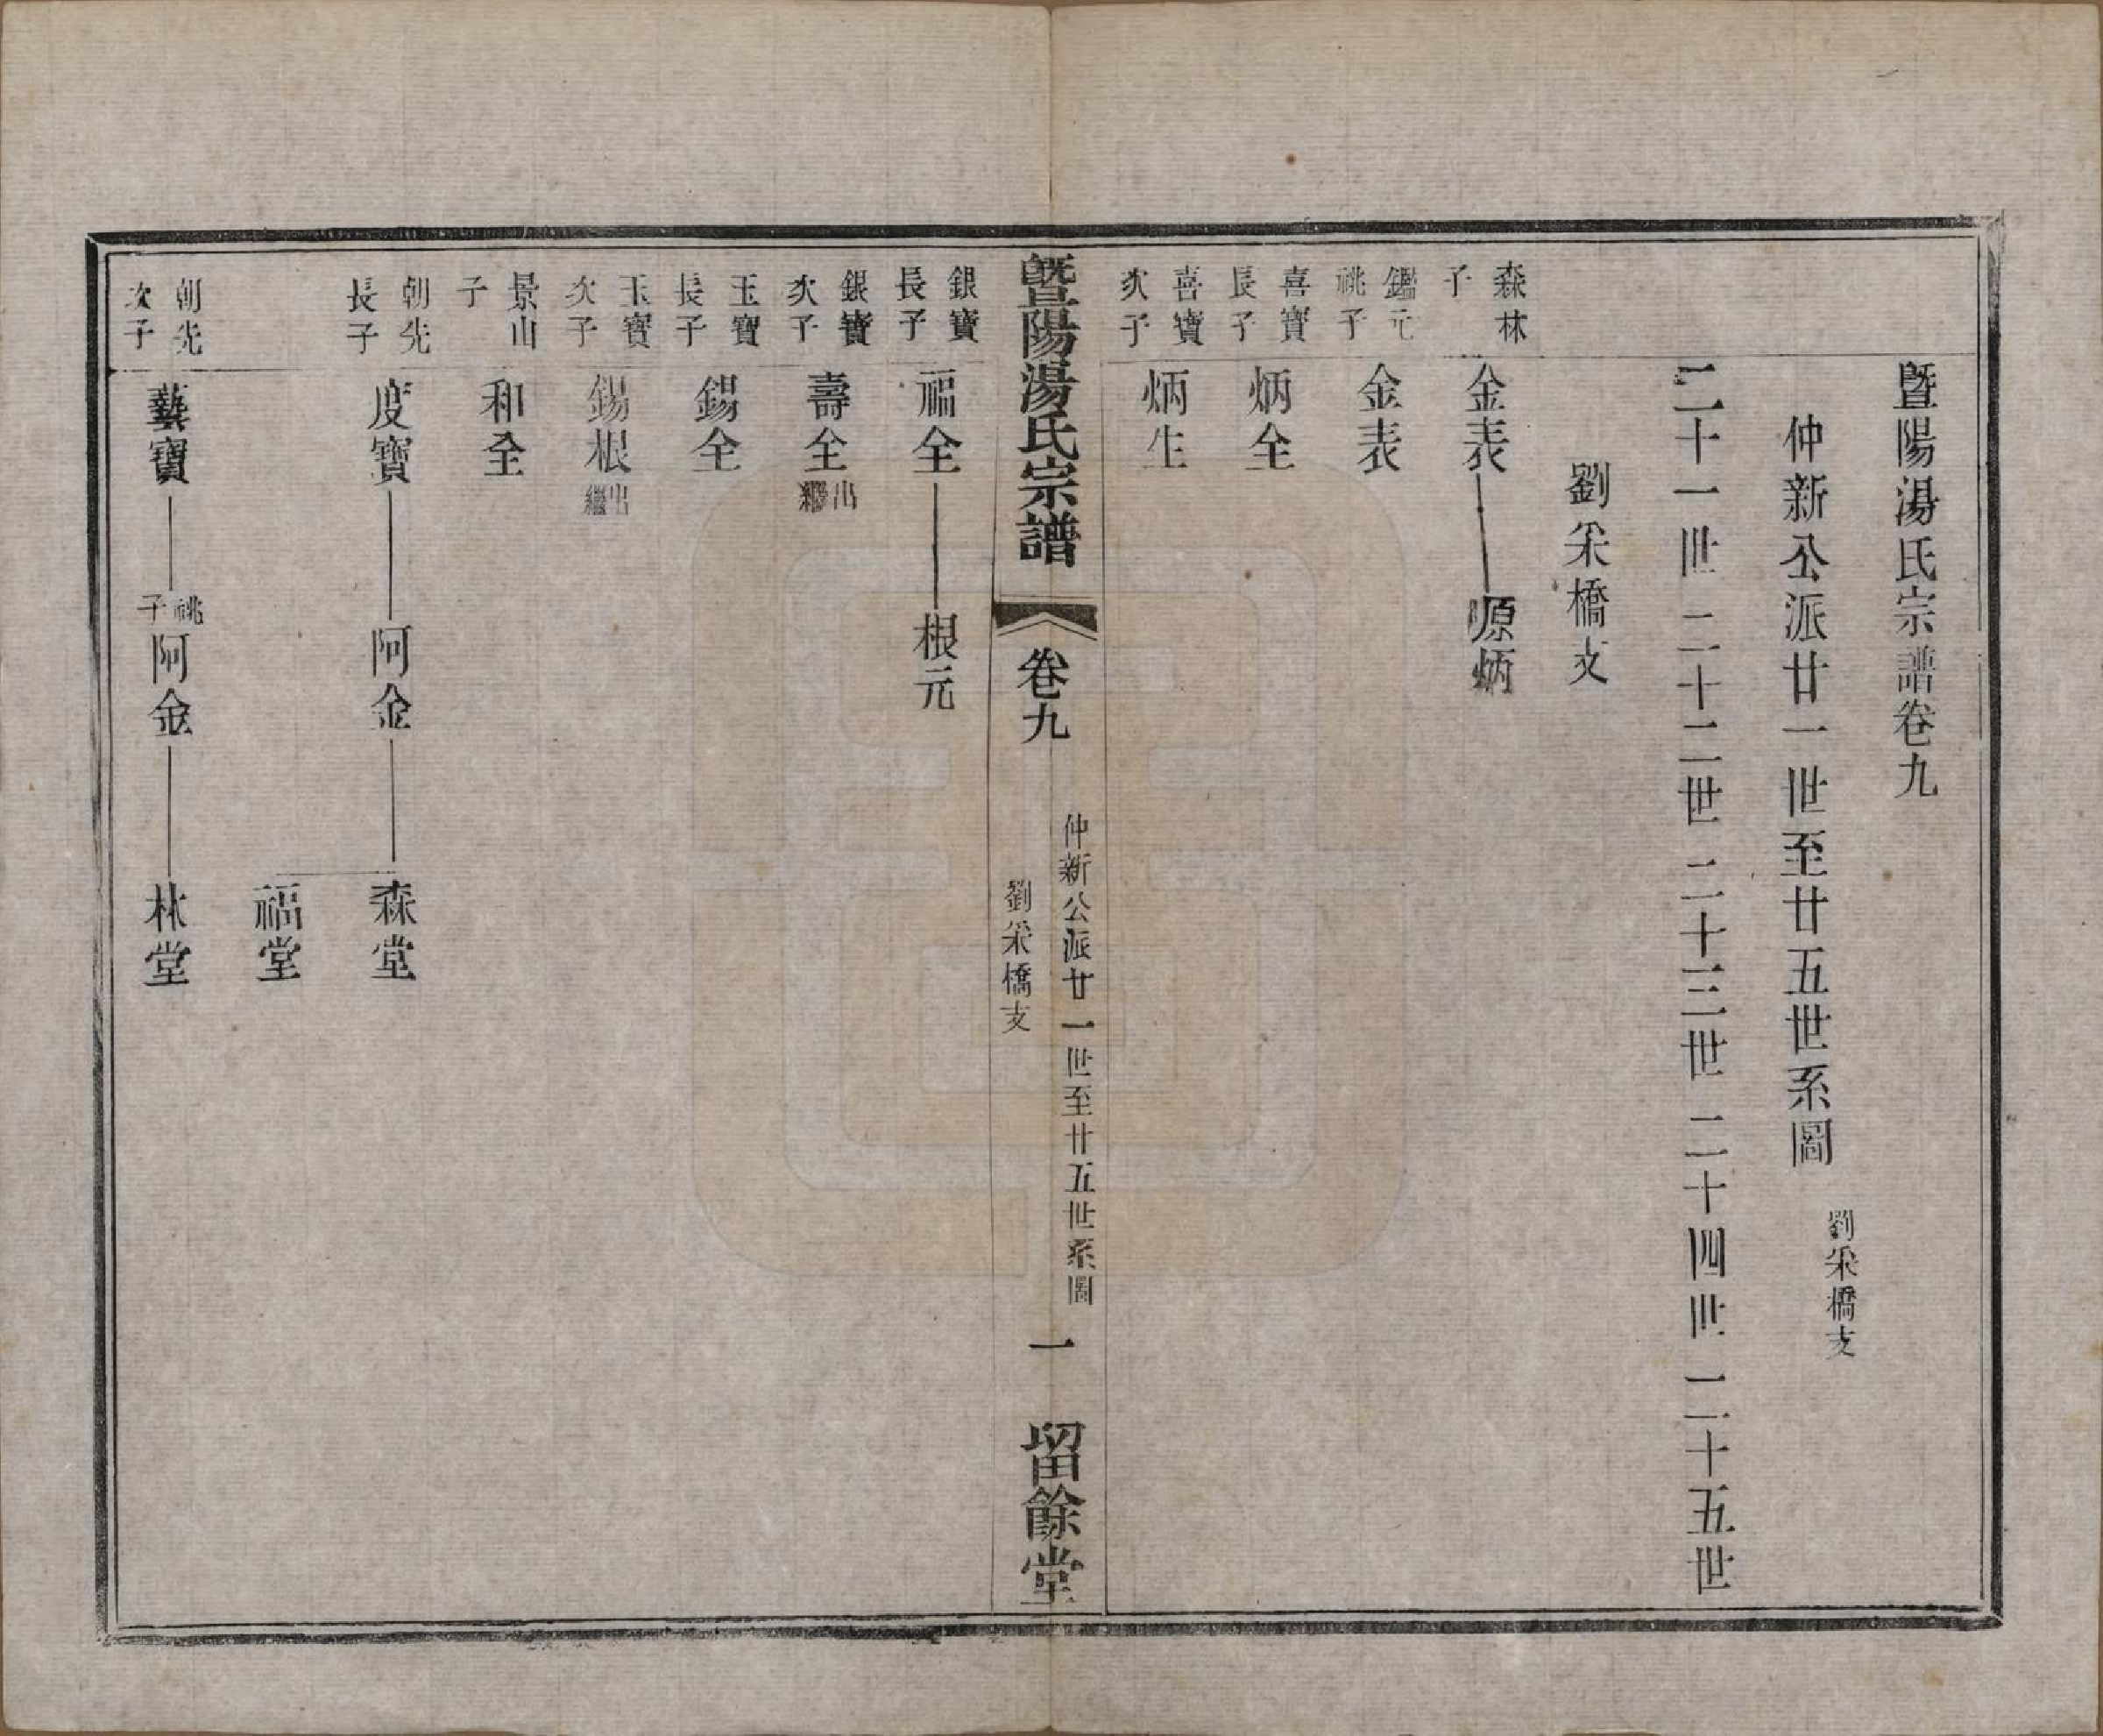 暨陽湯氏宗譜卷九
仲新公派廿一世至廿五世系圖
劉采橋支
二十一世 二十二世 二十三世 二十四世 二十五世
劉采橋支
森林
子
金表 源炳
鑑元
祧子
金表
喜寶
長子
炳全
喜寶
次子
炳生
暨陽湯氏宗譜 卷九
仲新公派廿一世至廿五世系圖
劉采橋支
一
留餘堂
銀寶
長子
福全 根元
銀寶
次子
壽全 出繼
玉寶
長子
錫全
玉寶
次子
錫根 出繼
景山
子
和全
朝先
長子
度寶 阿金 森堂
福堂
朝先
次子
藝寶 祧子 阿金 林堂